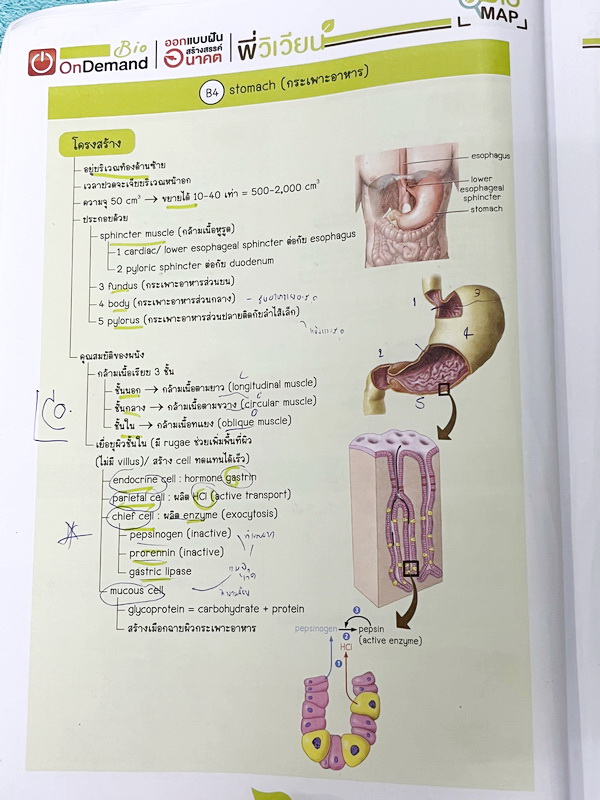 Bio
OnDemand
ออกแบบฝัน
สร้างสรรค์
อนาคต
พี่วิเวียน
MAP
B4 stomach (กระเพาะอาหาร)
โครงสร้าง
อยู่บริเวณท้องด้านซ้าย
เวลาปวดจะเจ็บบริเวณหน้าอก
ความจุ 50 cm³ → ขยายได้ 10-40 เท่า = 500-2,000 cm³
ประกอบด้วย
sphincter muscle (กล้ามเนื้อหูรูด)
1 cardiac/ lower esophageal sphincter ต่อกับ esophagus
2 pyloric sphincter ต่อกับ duodenum
3 fundus (กระเพาะอาหารส่วนบน)
4 body (กระเพาะอาหารส่วนกลาง)
5 pylorus (กระเพาะอาหารส่วนปลายติดกับลำไส้เล็ก)
esophagus
lower
esophageal
sphincter
stomach
1
3
4
2
5
คุณสมบัติของผนัง
กล้ามเนื้อเรียบ 3 ชั้น
ชั้นนอก → กล้ามเนื้อตามยาว (longitudinal muscle)
ชั้นกลาง → กล้ามเนื้อตามขวาง (circular muscle)
ชั้นใน → กล้ามเนื้อทแยง (oblique muscle)
เยื่อบุผิวชั้นใน (มี rugae ช่วยเพิ่มพื้นที่ผิว
(ไม่มี villus)/ สร้าง cell ทดแทนได้เร็ว)
endocrine cell : hormone gastrin
parietal cell : ผลิต HCl (active transport)
chief cell : ผลิต enzyme (exocytosis)
pepsinogen (inactive)
prorennin (inactive)
gastric lipase
mucous cell
glycoprotein = carbohydrate + protein
สร้างเมือกฉาบผิวกระเพาะอาหาร
3
pepsinogen → pepsin
2 (active enzyme)
HCl
1